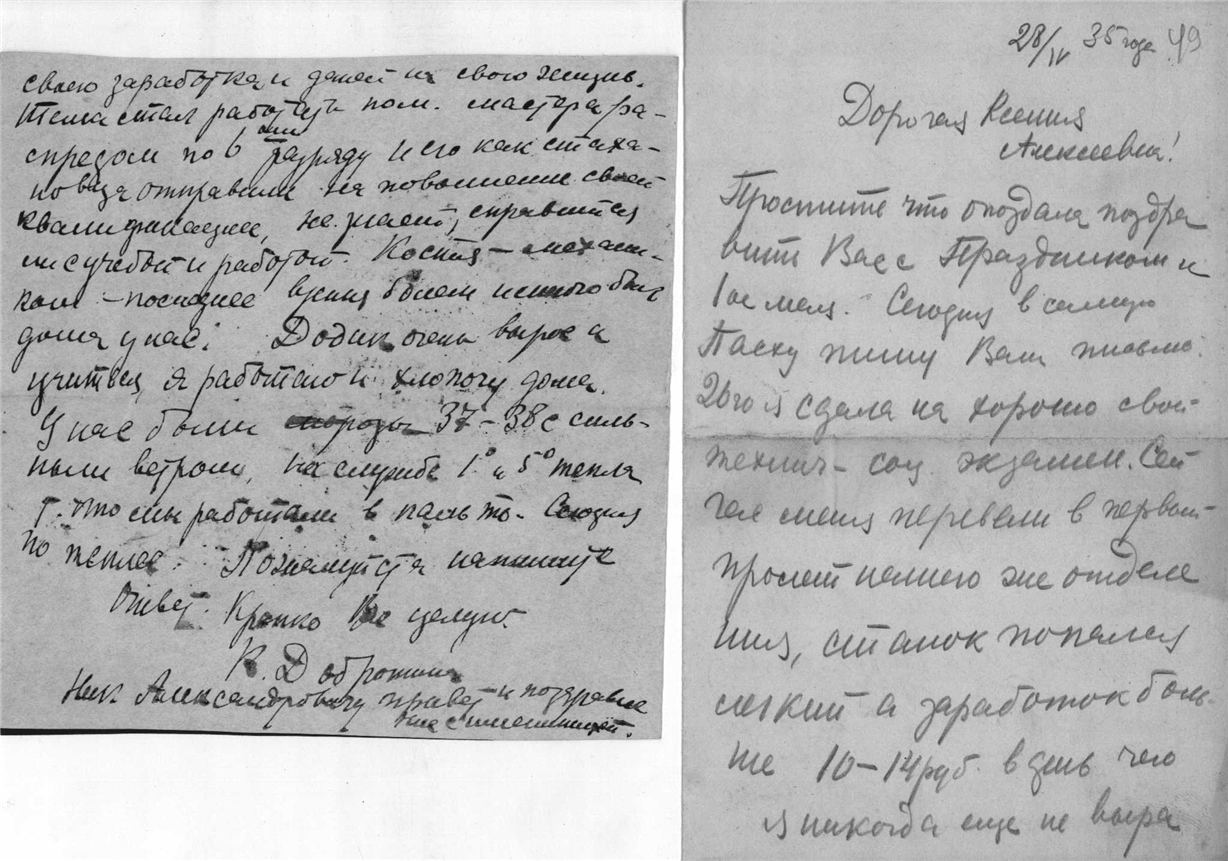 своего заработка и детей на свою жизнь.
Тема стал работать пом. мастера ра-
спредом по 6 ому разряду и его как стаха-
новца отправили на повышение своей
квалификации, не знает, справится
ли с учебой и работой. Костя – механи-
ком – последнее время болеет и много был
дома у нас. Додик очень вырос и
учится, я работаю и хлопочу дома.
У нас были морозы 37–38 с силь-
ным ветром, на службе 1° и 5° тепла
т. что мы работали в пальто. Сегодня
по теплее. Пожалуйста напишите
ответ. Крепко Вас целую.
К. Добротина
Ник. Александровичу привет и поздравле
ние с именинницей.
28/IV 35 года 49
Дорогая Ксения
Алексеевна!
Простите что опоздала поздра
вить Вас с Праздником и
1ое мая. Сегодня в самую
Пасху пишу Вам письмо.
26го я сдала на хорошо свой
технич– соц. экзамен. Сей
час меня перевели в первый
пролет нашего же отделе
ния, станок попался
легкий а заработок боль
ше 10–14 руб. в день чего
я никогда еще не выра